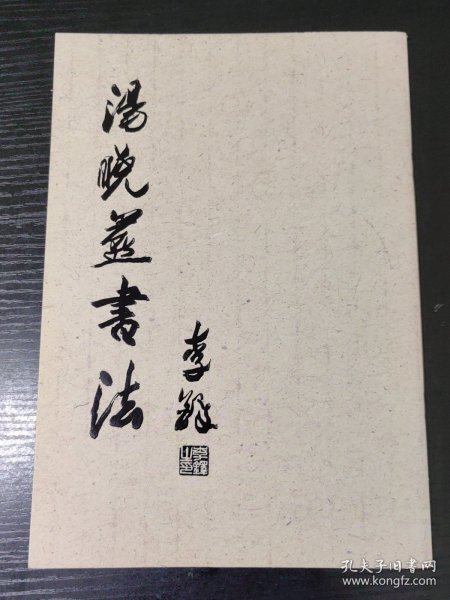 湯晓燕書法
李鐸
李鐸之印
孔夫子旧书网
www.kongfz.com